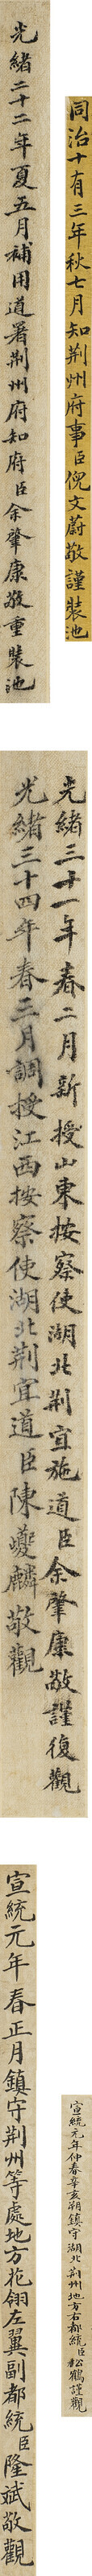 同治十有三年秋七月知荆州府事臣倪文蔚敬謹裝池
光緒二十二年夏五月補用道署荆州府知府臣余肇康敬重裝池
光緒三十一年春二月新授山東按察使湖北荆宜施道臣余肇康敬謹復觀
光緒三十四年春三月調授江西按察使湖北荆宜道臣陳夔麟敬觀
宣統元年仲春辛亥朔鎮守湖北荆州地方右都統臣松鶴謹觀
宣統元年春正月鎮守荆州等處地方花翎左翼副都統臣隆斌敬觀